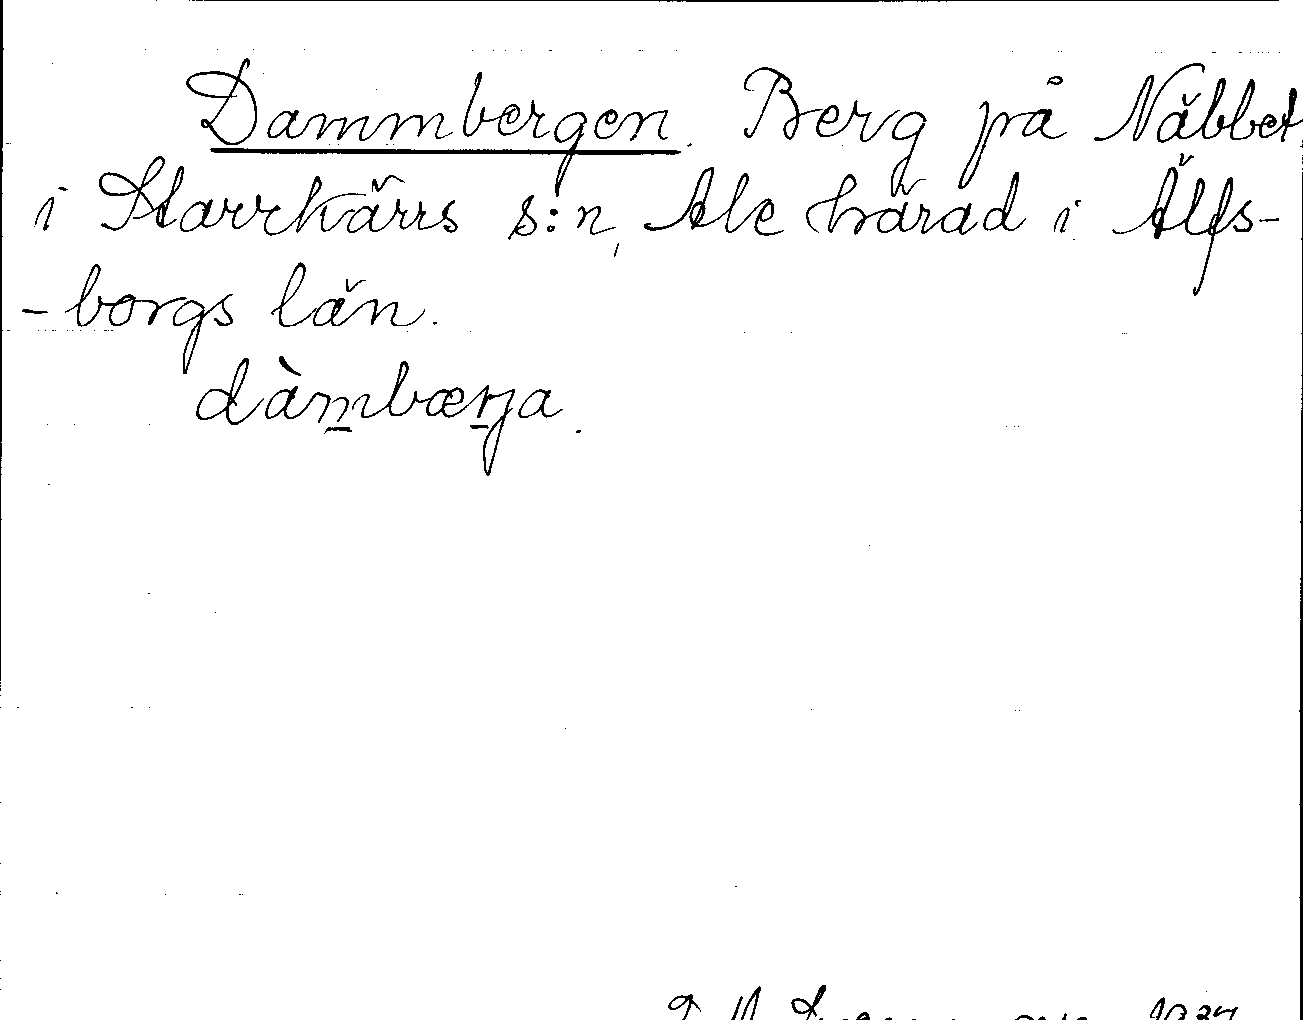 Dammbergen. Berg på Näbbet
i Starrkärrs s:n, Ale härad i Älfs-
-borgs län.
dàmbærja.